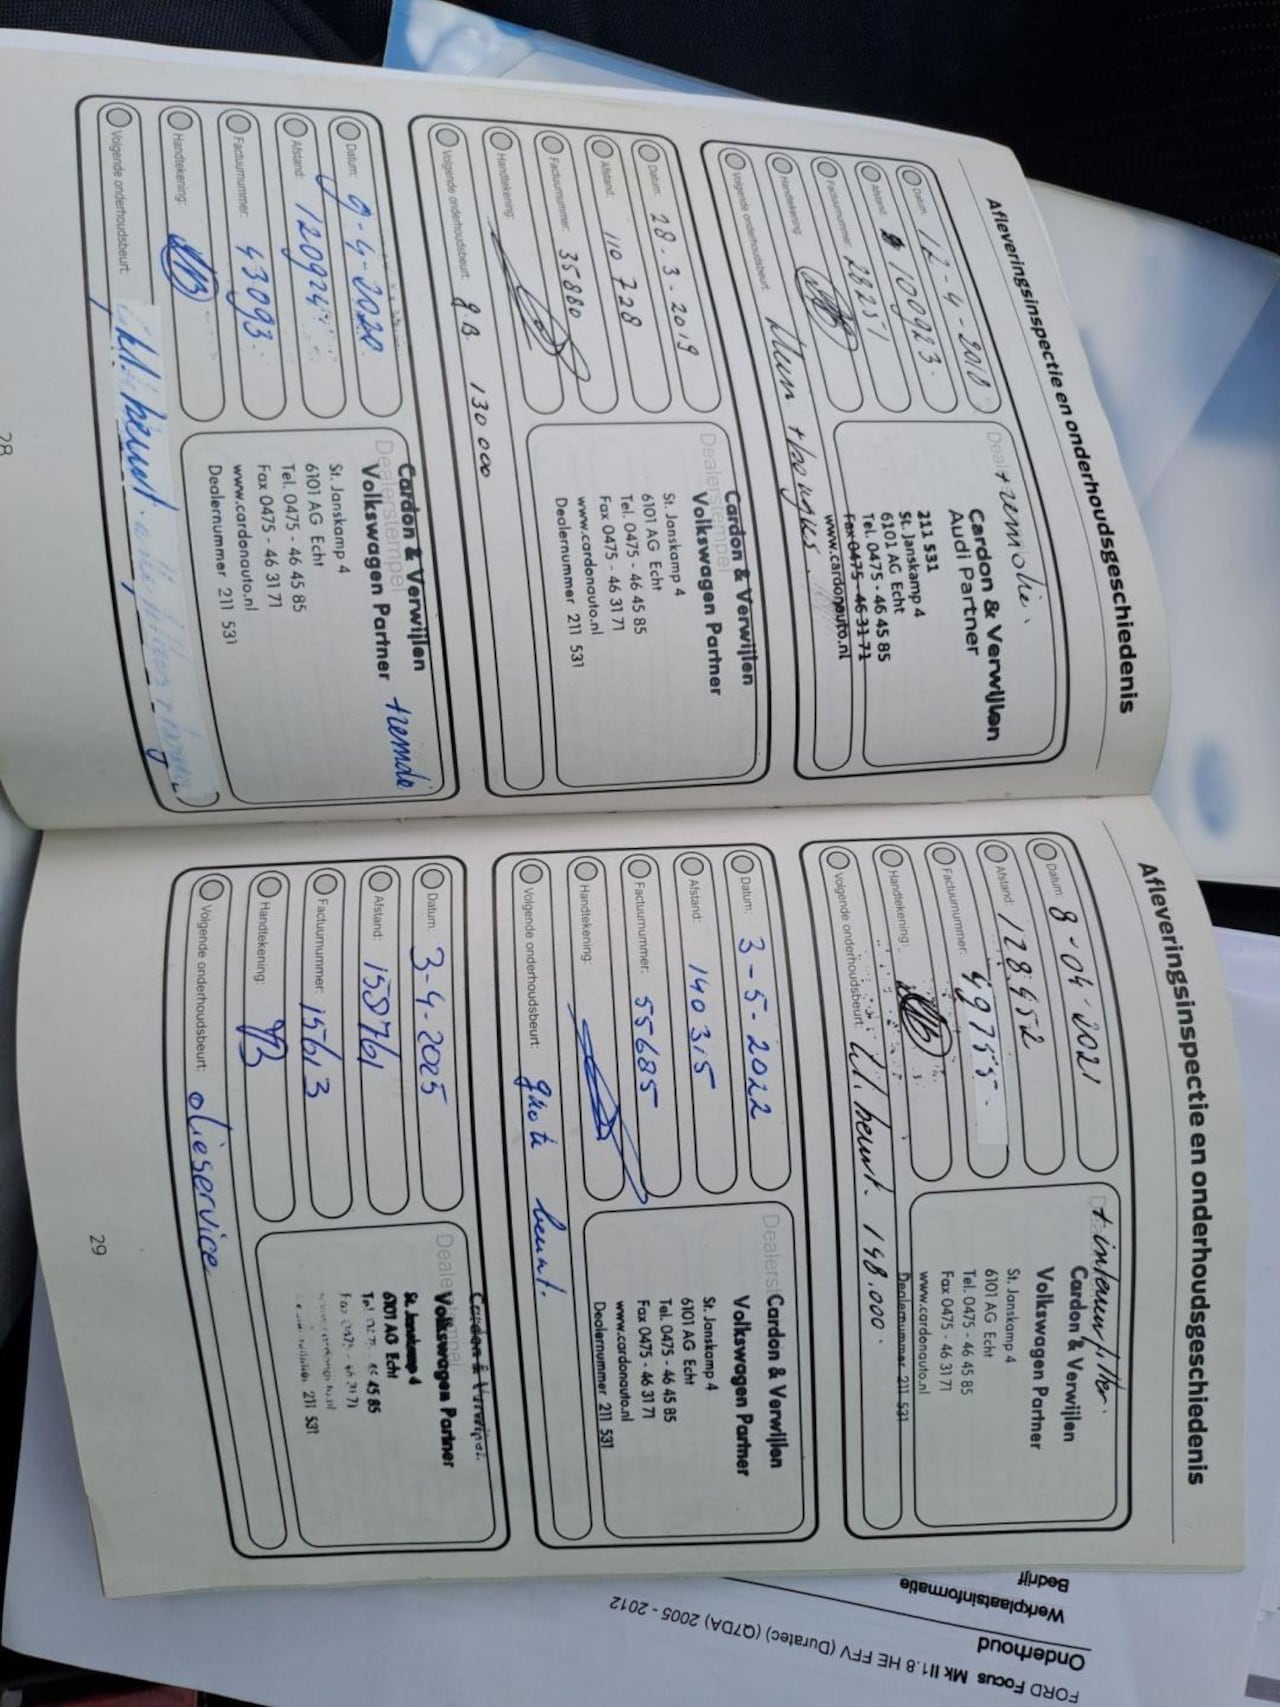 Afleveringsinspectie en onderhoudsgeschiedenis
Datum: 12-4-2018
Afstand: 100923.
Factuurnummer: 28251
Handtekening:
Volgende onderhoudsbeurt:
Dealerstempel
Cardon & Verwijlen
Audi Partner
211 531
St. Janskamp 4
6101 AG Echt
Tel. 0475 - 46 45 85
Fax 0475 - 46 31 71
www.cardonauto.nl
Datum: 28.3-2019
Afstand: 110 728
Factuurnummer: 35880
Handtekening:
Volgende onderhoudsbeurt: g.B. 130 000
Dealerstempel
Cardon & Verwijlen
Volkswagen Partner
St. Janskamp 4
6101 AG Echt
Tel. 0475 - 46 45 85
Fax 0475 - 46 31 71
www.cardonauto.nl
Dealernummer 211 531
Datum: 9-4-2020
Afstand: 120924
Factuurnummer: 43093
Handtekening:
Volgende onderhoudsbeurt: beurt
Dealerstempel
Cardon & Verwijlen
Volkswagen Partner
St. Janskamp 4
6101 AG Echt
Tel. 0475 - 46 45 85
Fax 0475 - 46 31 71
www.cardonauto.nl
Dealernummer 211 531
28
Afleveringsinspectie en onderhoudsgeschiedenis
Datum: 8-04-2021
Afstand: 128.452
Factuurnummer:
Handtekening:
Volgende onderhoudsbeurt: beurt. 148.000.
+ interieurfilter.
Cardon & Verwijlen
Volkswagen Partner
St. Janskamp 4
6101 AG Echt
Tel. 0475 - 46 45 85
Fax 0475 - 46 31 71
www.cardonauto.nl
Dealernummer 211 531
Datum: 3-5-2022
Afstand: 140 315
Factuurnummer: 55685
Handtekening:
Volgende onderhoudsbeurt: grote beurt.
Cardon & Verwijlen
Volkswagen Partner
St. Janskamp 4
6101 AG Echt
Tel. 0475 - 46 45 85
Fax 0475 - 46 31 71
www.cardonauto.nl
Dealernummer 211 531
Datum: 3-4-2025
Afstand: 158761
Factuurnummer: 15613
Handtekening:
Volgende onderhoudsbeurt: olieservice
Volkswagen Partner
St. Janskamp 4
6101 AG Echt
45 85
211 531
29
FORD Focus Mk II 1.8 HE FFV (Duratec) (Q7DA) 2005 - 2012
Onderhoud
Werkplaatsinformatie
Bedrijf